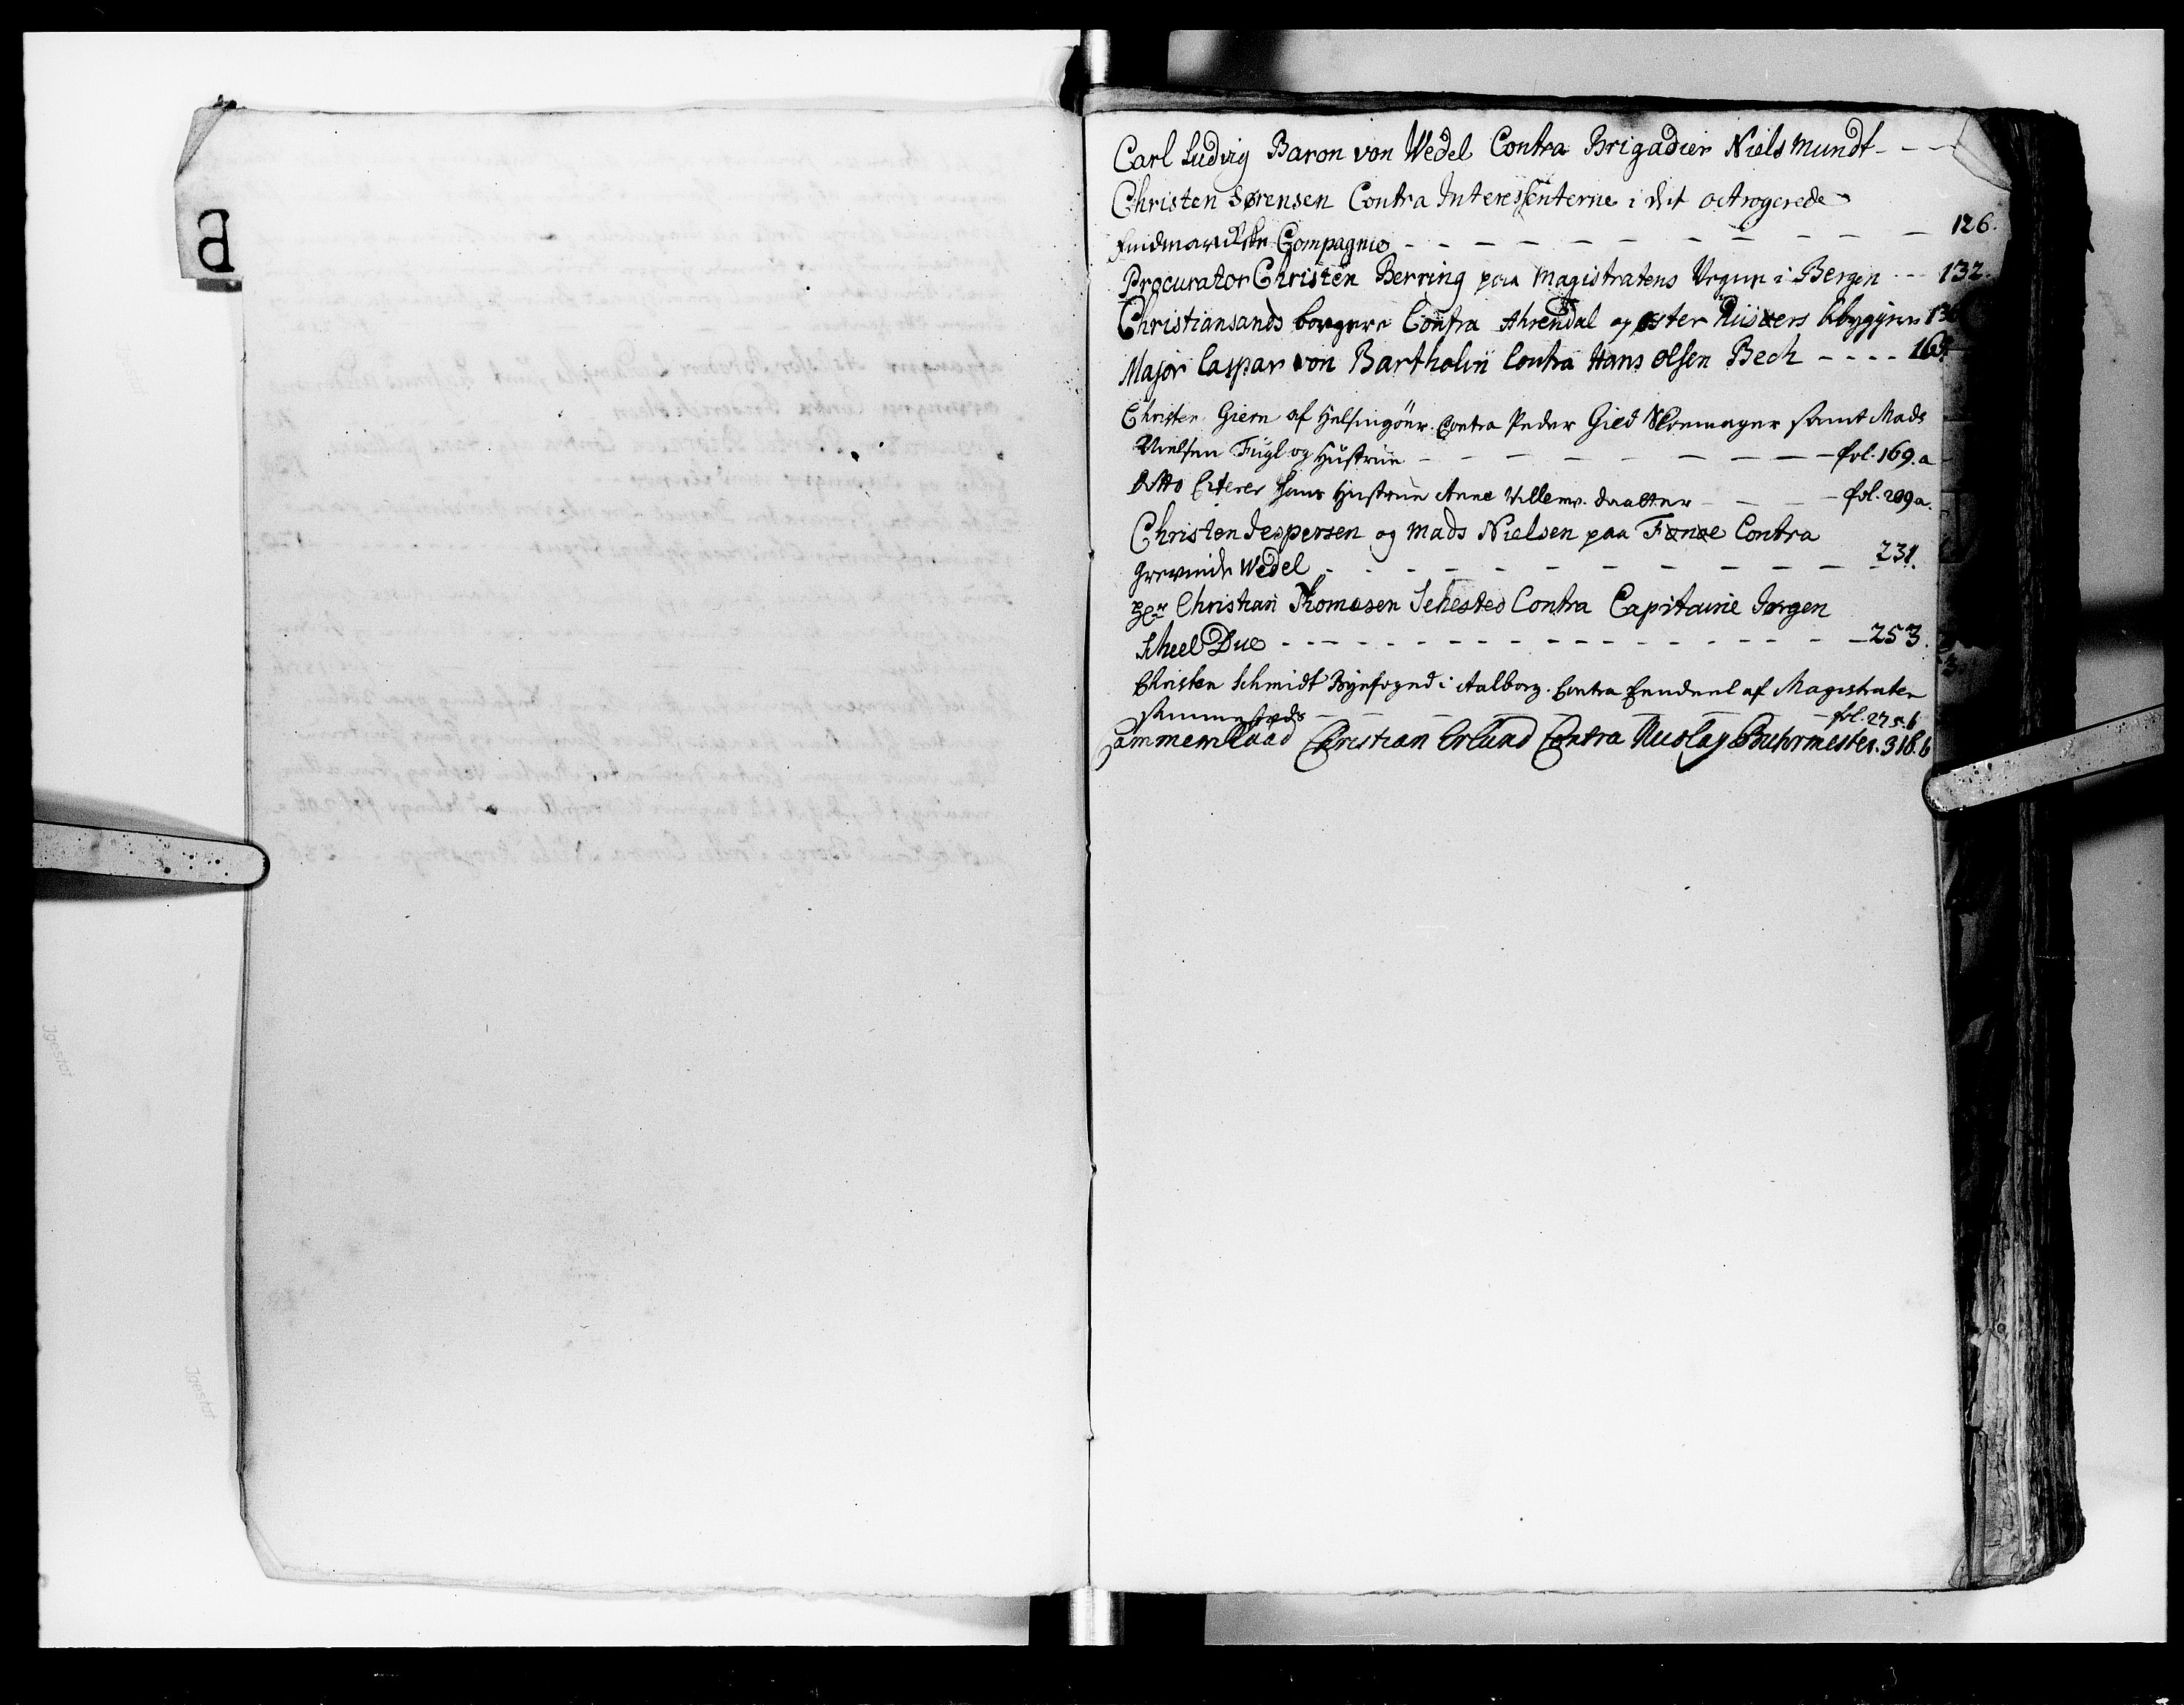 a
Carl Ludvig Baron von Wedel Contra Brigadier Niels Mundt - - -
Christen Sørensen Contra Interessenterne i det octrogerede
findmarckske Compagnie - - - - - - - - - - 126.
Procurator Christen Berring paa Magistratens Vegne i Bergen - - - 132.
Christiansands borgere Contra Ahrendal og øster Riisøers
Major Caspar von Bartholin Contra Hans Olsen Bech - - - -
Christen Giern af Helsingöer. Contra Peder Gied samt Mads
Nielsen Fugl og Hustrue - - - - - - - - fol. 169. a
Ditto hans Hustrue Anne Willems. daatter - - - fol. 209 a.
Christen Jespersen og Mads Nielsen paa Fanøe Contra
Grevinde Wedel - - - - - - - - - - 231.
Christian Thomesen Sehested Contra Capitaine Jørgen
Scheel Due - - - - - - - - - - - - - - 253.
Christen Schmidt Byefoged i Aalborg. Contra Eendeel af Magistraten
sammesteds - - - - - - fol. 275. b
Cammerraad Christian Erlund Contra Nicolay Buhrmester. 318. b